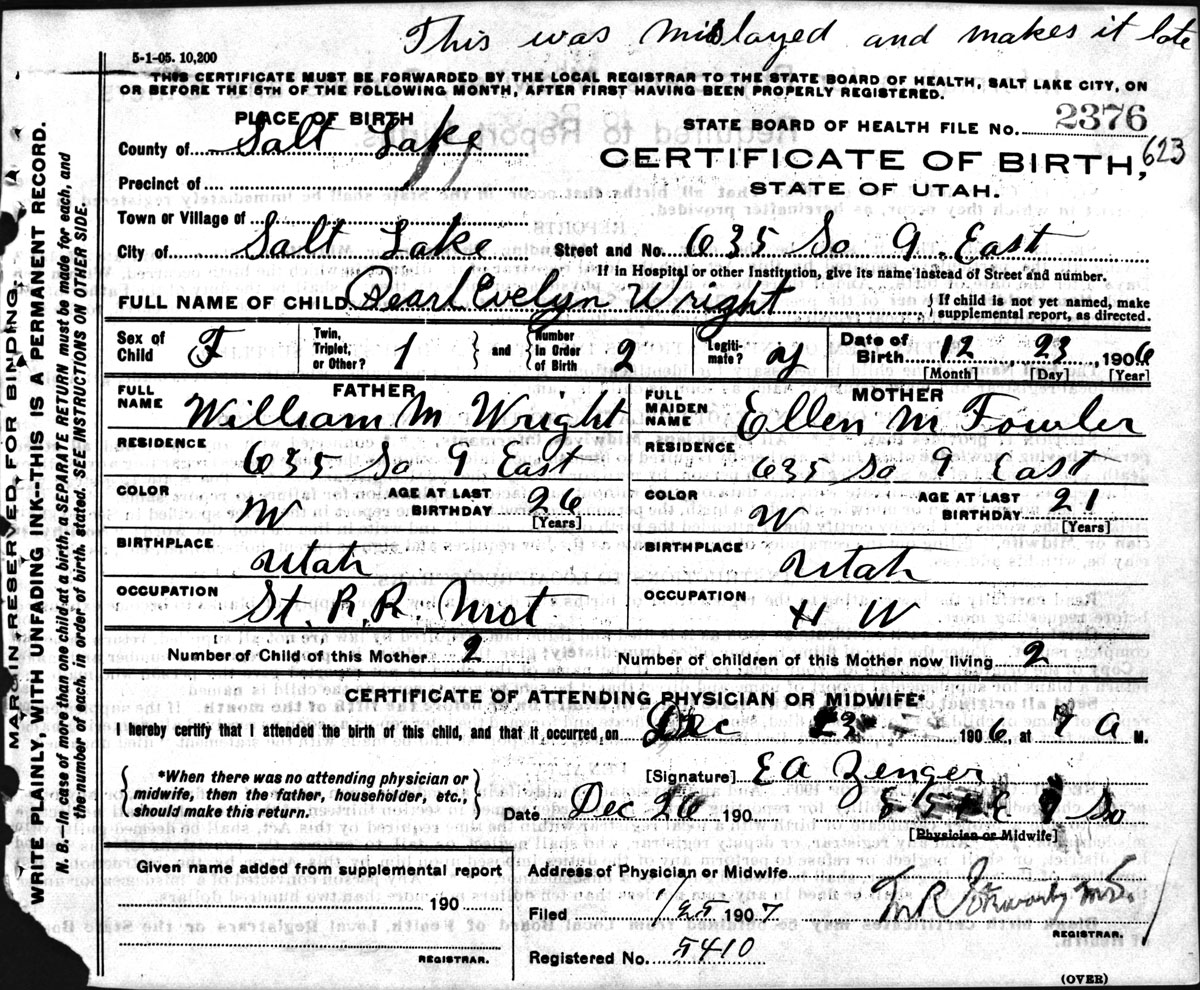 This was mislayed and makes it late
5-1-05. 10,200
THIS CERTIFICATE MUST BE FORWARDED BY THE LOCAL REGISTRAR TO THE STATE BOARD OF HEALTH, SALT LAKE CITY, ON
OR BEFORE THE 5TH OF THE FOLLOWING MONTH, AFTER FIRST HAVING BEEN PROPERLY REGISTERED.
PLACE OF BIRTH
STATE BOARD OF HEALTH FILE NO. 2376
County of Salt Lake
CERTIFICATE OF BIRTH, 623
Precinct of
STATE OF UTAH.
Town or Village of
City of Salt Lake Street and No. 635 So 9. East
[If in Hospital or other Institution, give its name instead of Street and number.
FULL NAME OF CHILD Pearl Evelyn Wright {If child is not yet named, make supplemental report, as directed.
Sex of Child F Twin, Triplet, or Other? 1 } and { Number in Order of Birth 2 Legitimate? y Date of Birth 12 23 1906
[Month] [Day] [Year]
FATHER
FULL NAME William M Wright
RESIDENCE
635 So 9 East
COLOR W AGE AT LAST BIRTHDAY 26
[Years]
BIRTHPLACE
Utah
OCCUPATION
St. R. R. Mot
MOTHER
FULL MAIDEN NAME Ellen M Fowler
RESIDENCE
635 So 9 East
COLOR W AGE AT LAST BIRTHDAY 21
[Years]
BIRTHPLACE
Utah
OCCUPATION
H W
Number of Child of this Mother 2 Number of children of this Mother now living 2
CERTIFICATE OF ATTENDING PHYSICIAN OR MIDWIFE*
I hereby certify that I attended the birth of this child, and that it occurred on Dec 1906, at 9 A M.
*When there was no attending physician or
midwife, then the father, householder, etc.,
should make this return.
[Signature] E A Zenger
Date Dec 26 190
[Physician or Midwife]
Given name added from supplemental report
190
REGISTRAR.
Address of Physician or Midwife
Filed 1/25 1907
REGISTRAR.
Registered No. 5410
(OVER)
MARGIN RESERVED FOR BINDING.
WRITE PLAINLY, WITH UNFADING INK--THIS IS A PERMANENT RECORD.
N. B.--In case of more than one child at a birth, a SEPARATE RETURN must be made for each, and
the number of each, in order of birth stated. SEE INSTRUCTIONS ON OTHER SIDE.